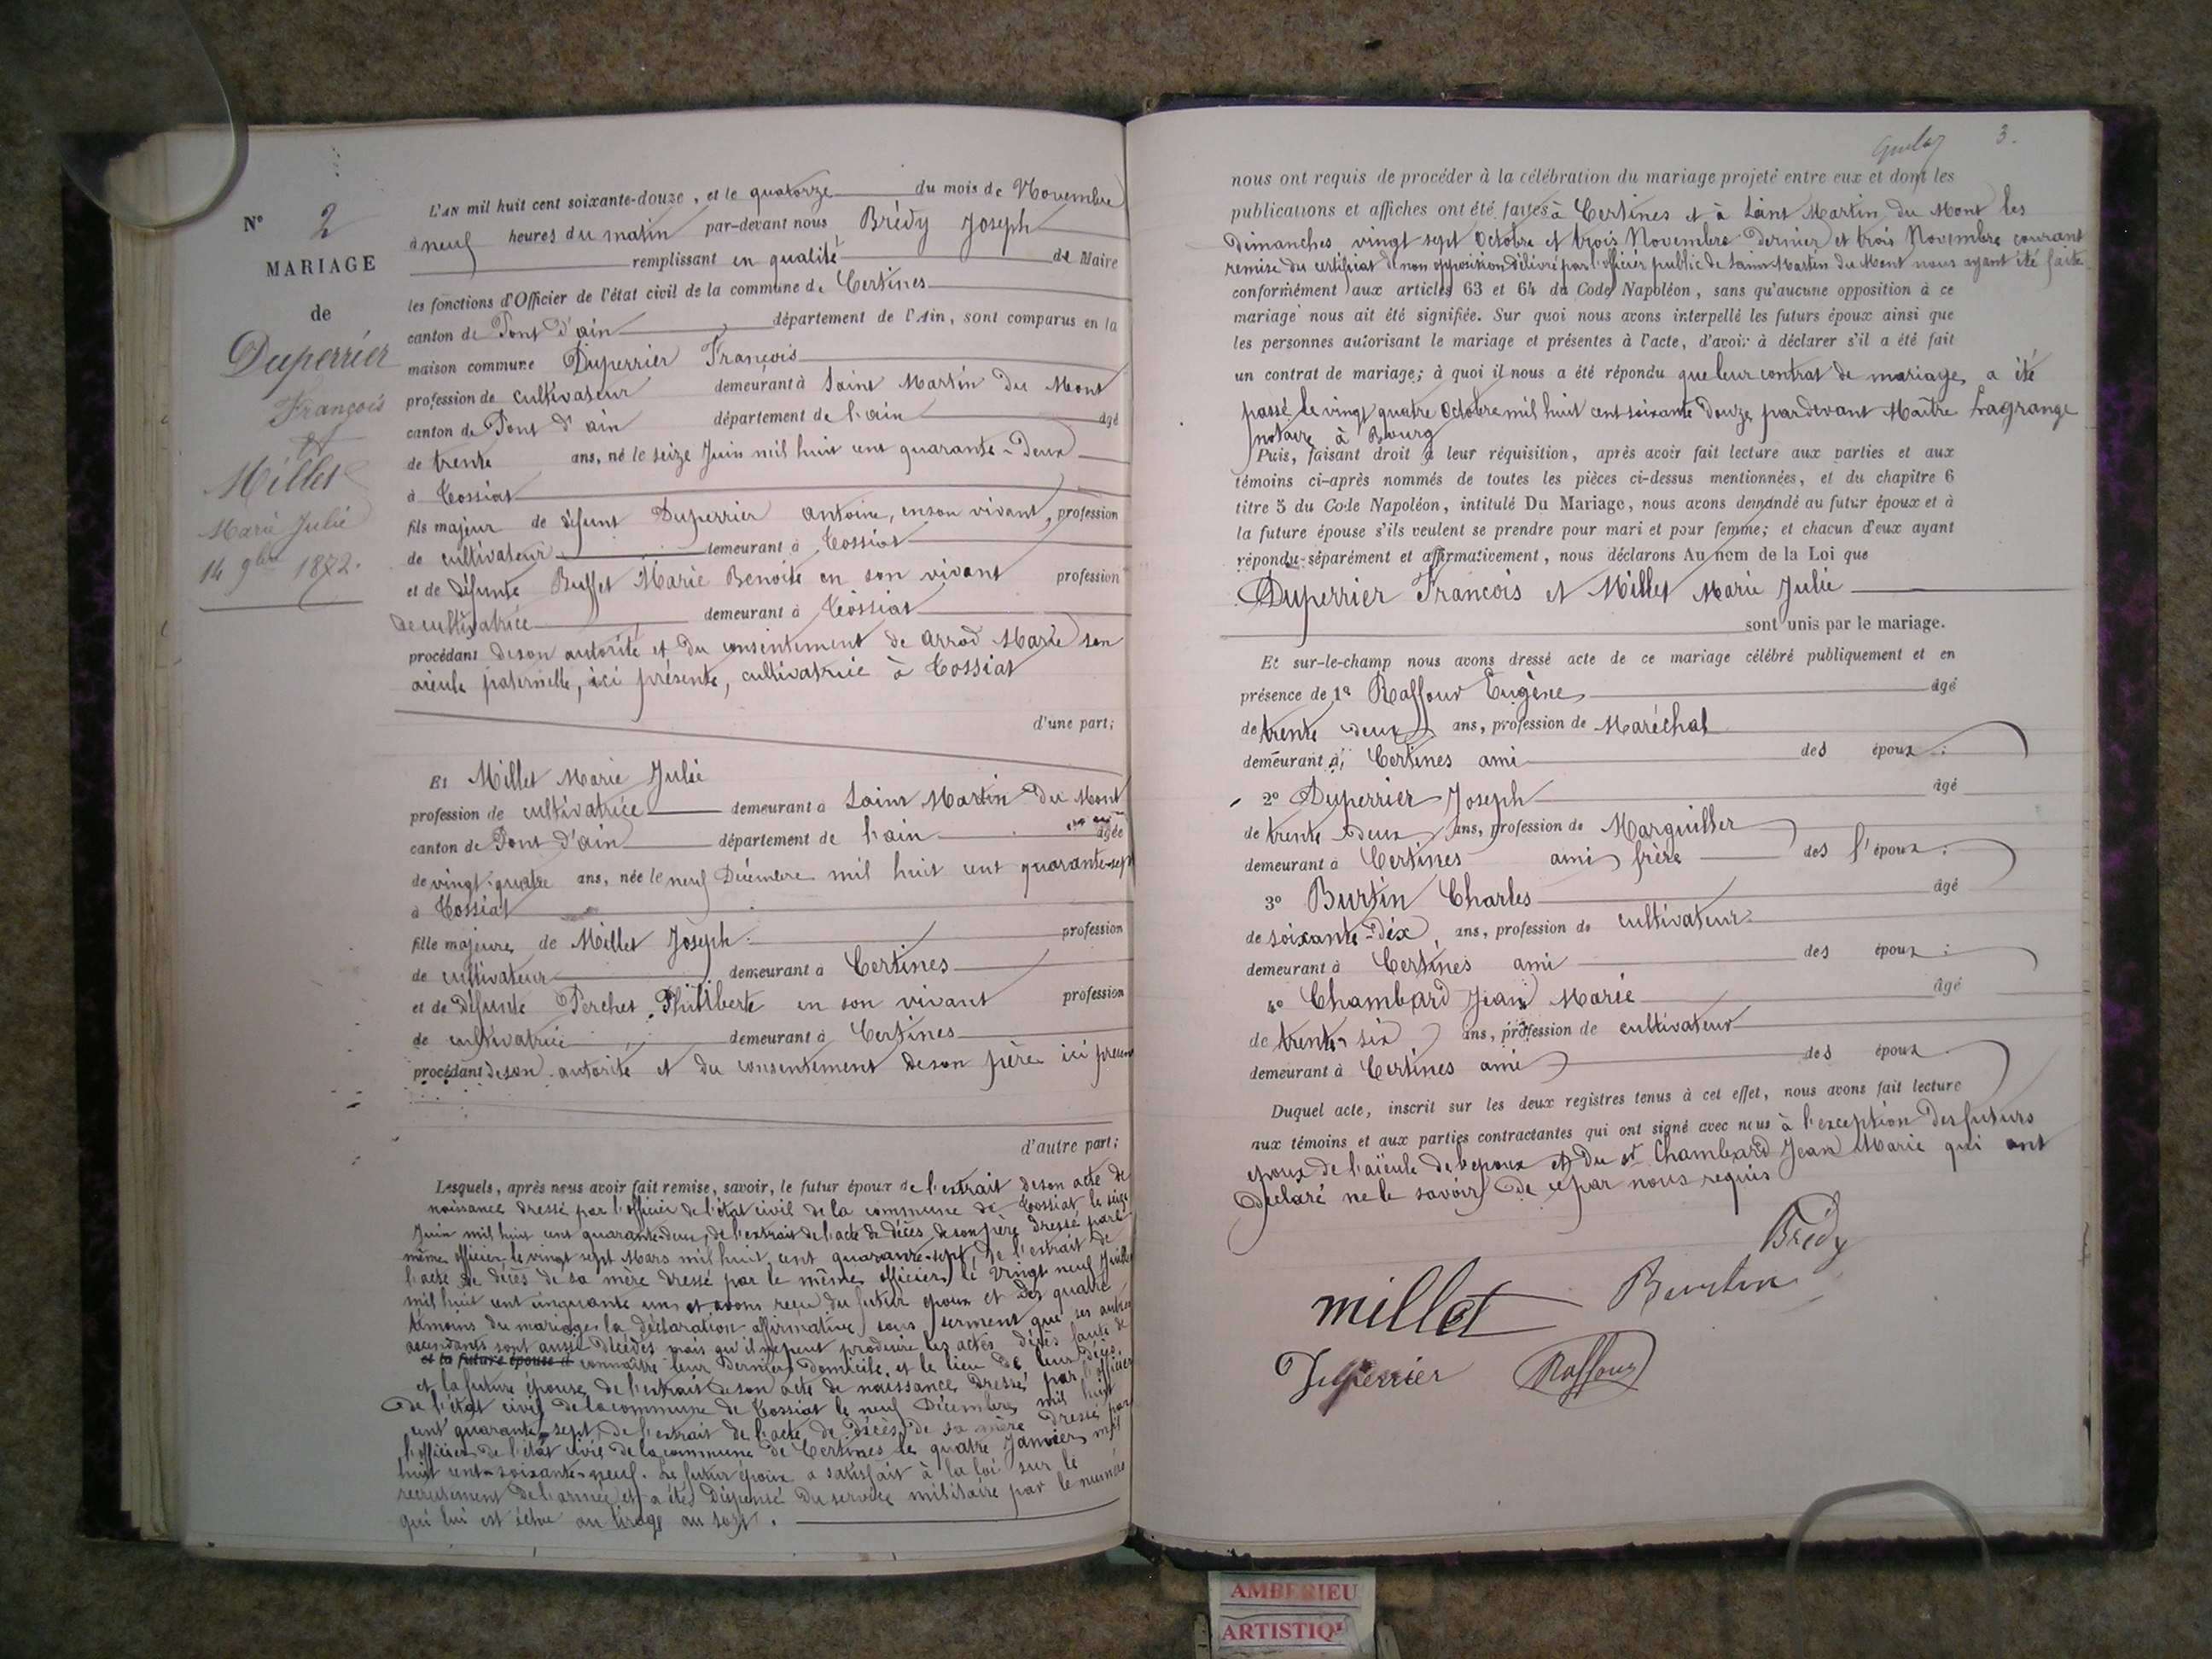 N° 2
MARIAGE
de
Duperrier
François
et
Millet
Marie Julie
14 9bre 1872.
L'AN mil huit cent soixante-douze, et le quatorze du mois de Novembre
à neuf heures du matin par-devant nous Brédy Joseph
remplissant en qualité de Maire
les fonctions d'Officier de l'état civil de la commune de Certines
canton de Pont d'ain département de l'Ain, sont comparus en la
maison commune Duperrier François
profession de cultivateur demeurant à Saint Martin du Mont
canton de Pont d'ain département de l'ain âgé
de trente ans, né le seize Juin mil huit cent quarante-Deux
à Tossiat
fils majeur de défunt Duperrier antoine, en son vivant, profession
de cultivateur demeurant à Tossiat
et de défunte Buffet Marie Benoite en son vivant profession
de cultivatrice demeurant à Tossiat
procédant de son autorité et du consentement de arrod Marie son
aieule paternelle, ici présente, cultivatrice à Tossiat
d'une part;
Et Millet Marie Julie
profession de cultivatrice demeurant à Saint Martin du Mont
canton de Pont d'ain département de l'ain âgée
de vingt-quatre ans, née le neuf Décembre mil huit cent quarante-sept
à Tossiat
fille majeure de Millet Joseph profession
de cultivateur demeurant à Certines
et de défunte Perchet Philiberte en son vivant profession
de cultivatrice demeurant à Certines
procédant de son autorité et du consentement de son père ici présent
d'autre part;
Lesquels, après nous avoir fait remise, savoir, le futur époux de l'extrait de son acte de
naissance dressé par l'officier de l'état civil de la commune de Tossiat le seize
Juin mil huit cent quarante-deux, de l'extrait de l'acte de décès de son père dressé par le
même officier, le vingt sept Mars mil huit cent quarante-sept, de l'extrait de
l'acte de décès de sa mère dressé par le même officier le vingt neuf Juillet
mil huit cent cinquante un et avons reçu du futur époux et des quatre
témoins du mariage la déclaration affirmative sous serment que ses autres
ascendants sont aussi décédés mais qu'il ne peut produire les actes décès faute de
et la future épouse d connaître leur dernier domicile et le lieu de leur décès.
et la future épouse, de l'extrait de son acte de naissance dressé par l'officier
de l'état civil de la commune de Tossiat le neuf Décembre mil huit
cent quarante-sept, de l'extrait de l'acte de décès de sa mère dressé par
l'officier de l'état civil de la commune de Certines le quatre Janvier mil
huit cent-soixante-neuf. Le futur époux a satisfait à la loi sur le
recrutement de l'armée et a été dispensé du service militaire par le numéro
qui lui est échu au tirage au sort.
3.
nous ont requis de procéder à la célébration du mariage projeté entre eux et dont les
publications et affiches ont été faites à Certines et à Saint Martin du Mont les
dimanches vingt sept Octobre et trois Novembre dernier et trois Novembre courant
remise du certificat de non opposition délivré par l'officier public de Saint Martin du Mont nous ayant été faite
conformément aux articles 63 et 64 du Code Napoléon, sans qu'aucune opposition à ce
mariage nous ait été signifiée. Sur quoi nous avons interpellé les futurs époux ainsi que
les personnes autorisant le mariage et présentes à l'acte, d'avoir à déclarer s'il a été fait
un contrat de mariage; à quoi il nous a été répondu que leur contrat de mariage a été
passé le vingt quatre Octobre mil huit cent soixante douze pardevant Maître Lagrange
notaire à Bourg
Puis, faisant droit à leur réquisition, après avoir fait lecture aux parties et aux
témoins ci-après nommés de toutes les pièces ci-dessus mentionnées, et du chapitre 6
titre 5 du Code Napoléon, intitulé Du Mariage, nous avons demandé au futur époux et à
la future épouse s'ils veulent se prendre pour mari et pour femme; et chacun d'eux ayant
répondu séparément et affirmativement, nous déclarons Au nom de la Loi que
Duperrier François et Millet Marie Julie
sont unis par le mariage.
Et sur-le-champ nous avons dressé acte de ce mariage célébré publiquement et en
présence de 1° Raffour Eugène âgé
de trente deux ans, profession de Maréchal
demeurant à Certines ami des époux :
2° Duperrier Joseph âgé
de trente-deux ans, profession de Marguillier
demeurant à Certines ami frère des l'époux :
3° Burtin Charles âgé
de soixante-dix ans, profession de cultivateur
demeurant à Certines ami des époux :
4° Chambard Jean Marie âgé
de trente-six ans, profession de cultivateur
demeurant à Certines ami des époux
Duquel acte, inscrit sur les deux registres tenus à cet effet, nous avons fait lecture
aux témoins et aux parties contractantes qui ont signé avec nous à l'exception des futurs
époux de l'aïeule de l'époux et du sr Chambard Jean Marie qui ont
déclaré ne le savoir de ce par nous requis
Brédy
millet Burtin
Duperrier Raffour
AMBERIEU
ARTISTIQ